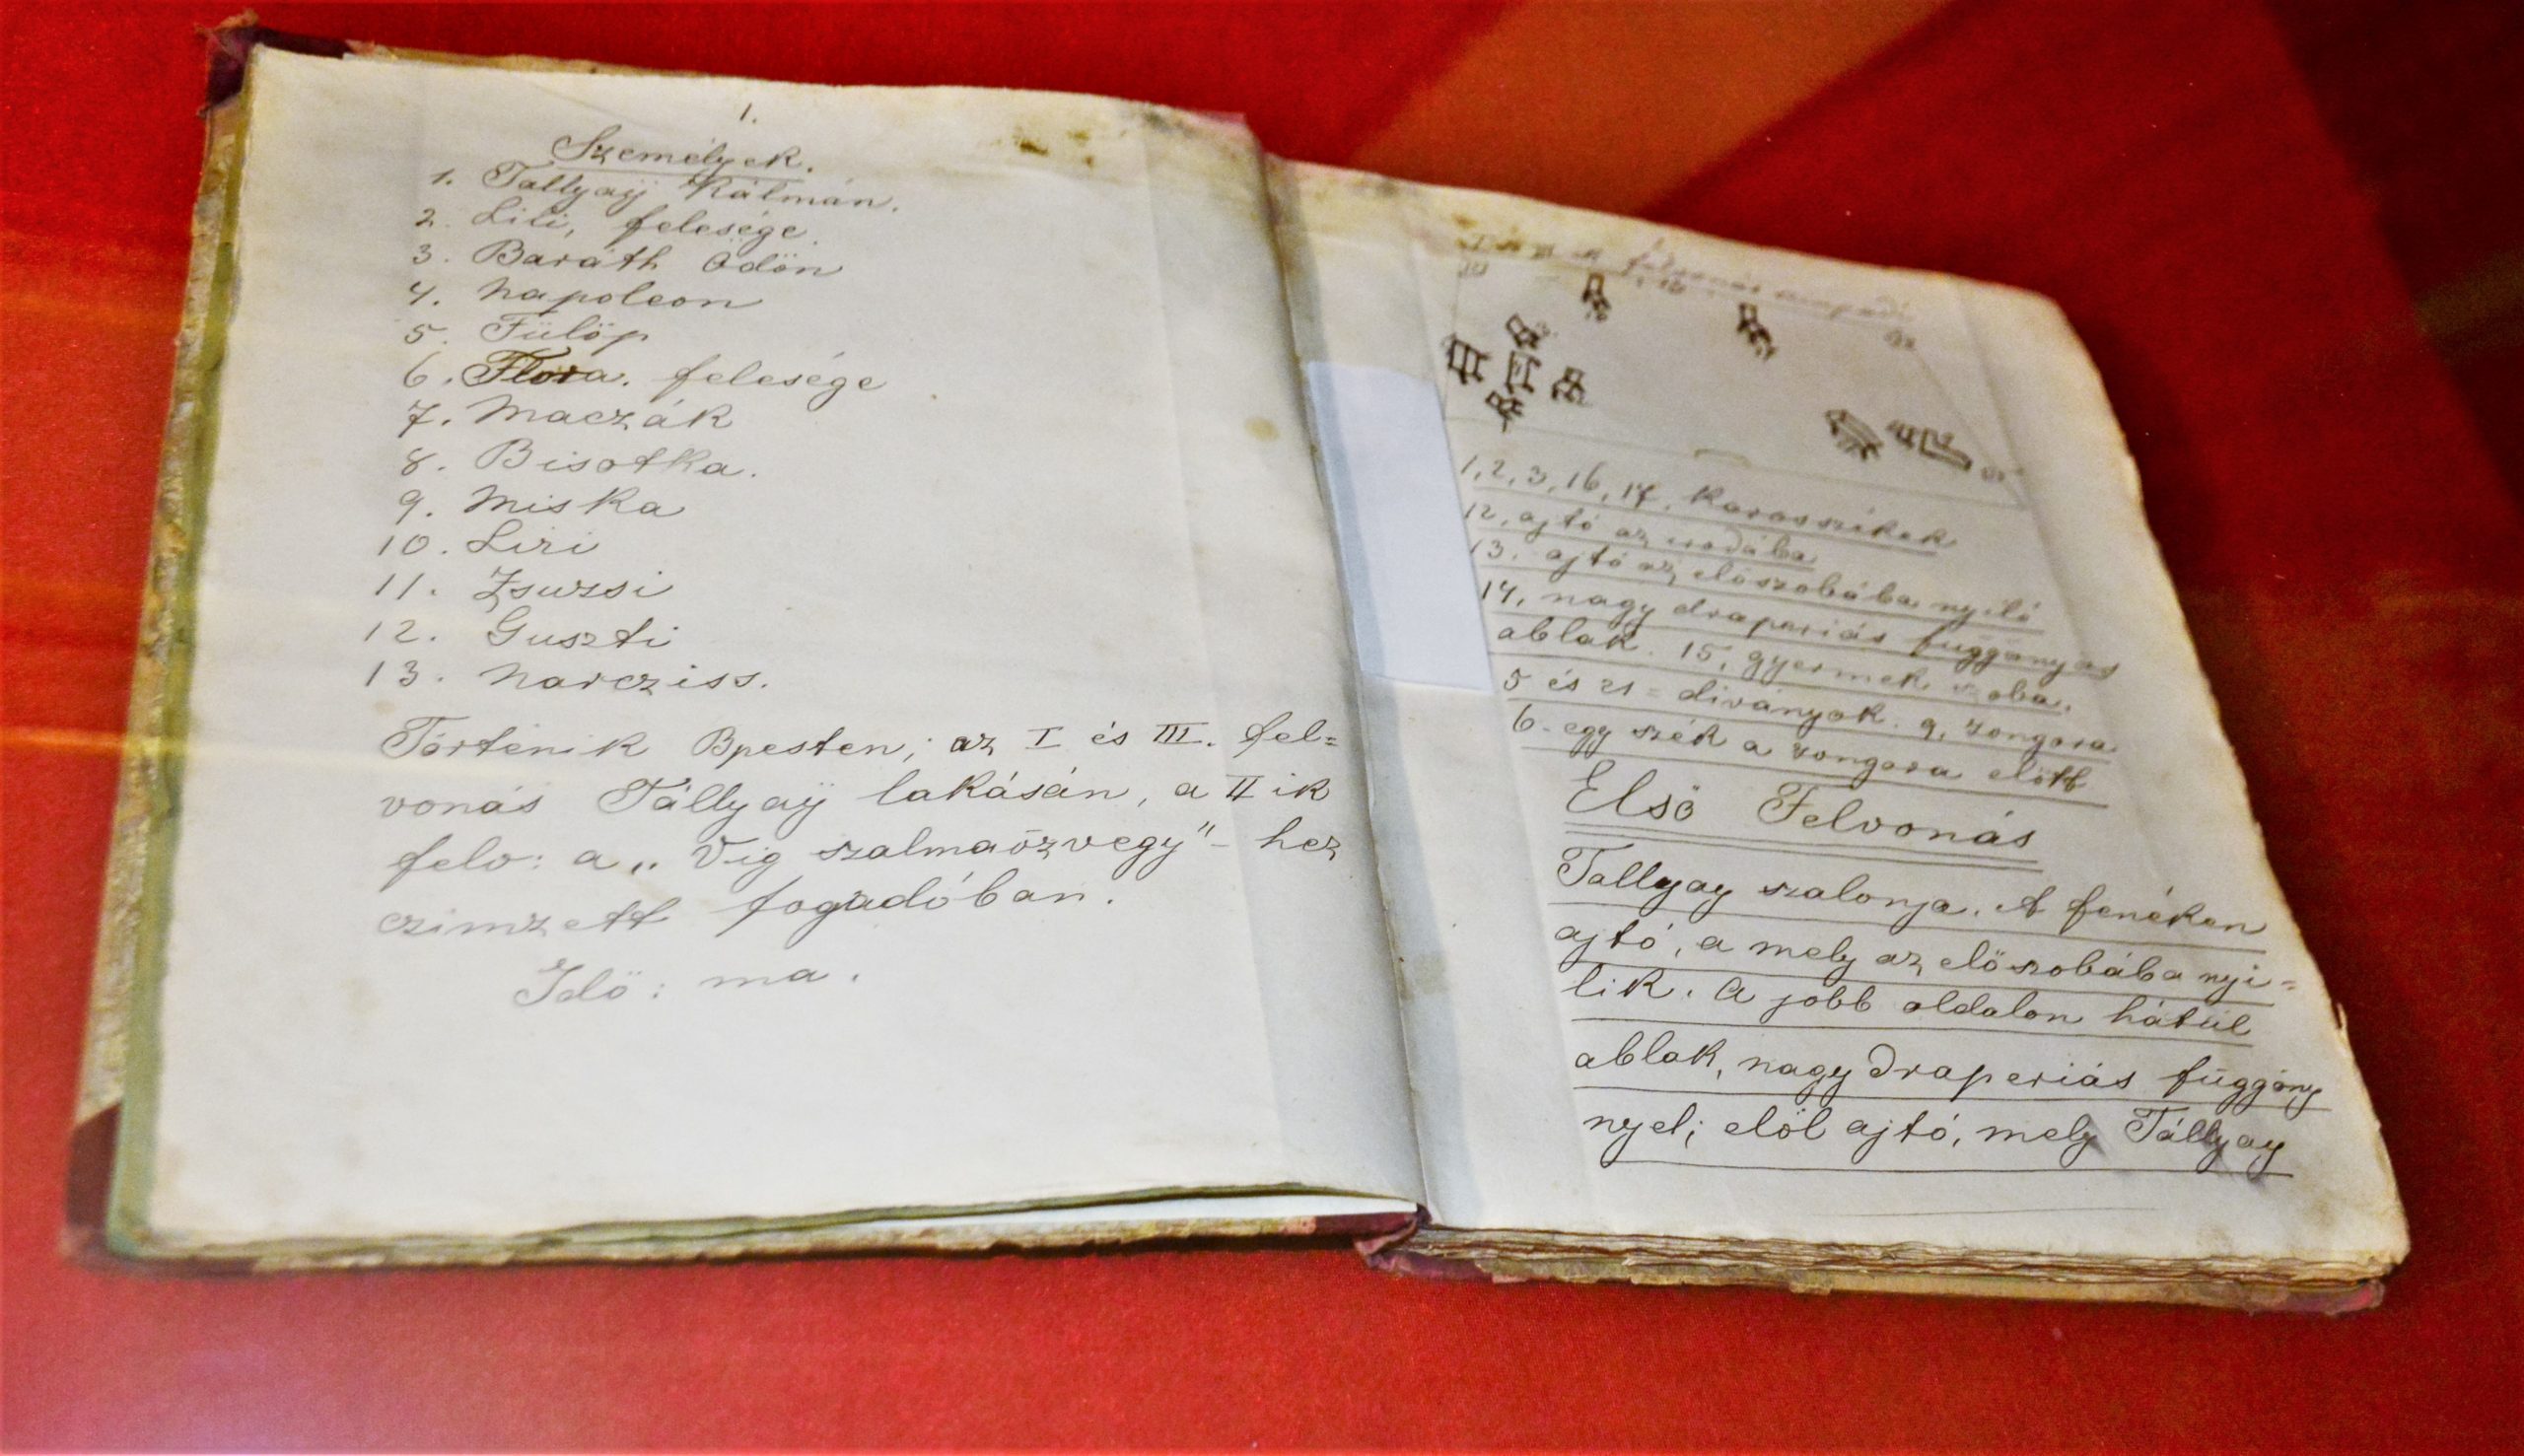 1.
Személyek.
1. Tallyaÿ Kálmán.
2. Lili, felesége.
3. Baráth Ödön
4. Napoleon
5. Fülöp
6. Flóra. felesége
7. Maczák
8. Bisotka.
9. Miska
10. Lizi
11. Zsuzsi
12. Guszti
13. Narcziss.
Történik Bpesten; az I és III. fel=
vonás Tállyaÿ lakásán, a II ik
felv: a „Víg szalmaözvegy"-hez
czimzett fogadóban.
Idö: ma.
felvonás
1, 2, 3, 16, 17, Karosszékek
12, ajtó az irodába
13. ajtó az elöszobába nyiló
14, nagy draperiás függönyös
ablak. 15, gyermek szoba.
5 és 21 = diványok. 9, zongora
6 - egy szék a zongora elött
Elsö Felvonás
Tallyay szalonja. A fenéken
ajtó, a mely az elöszobába nyi=
lik. A jobb oldalon hátul
ablak, nagy draperiás függöny
nyel; elöl ajtó, mely Tállyay